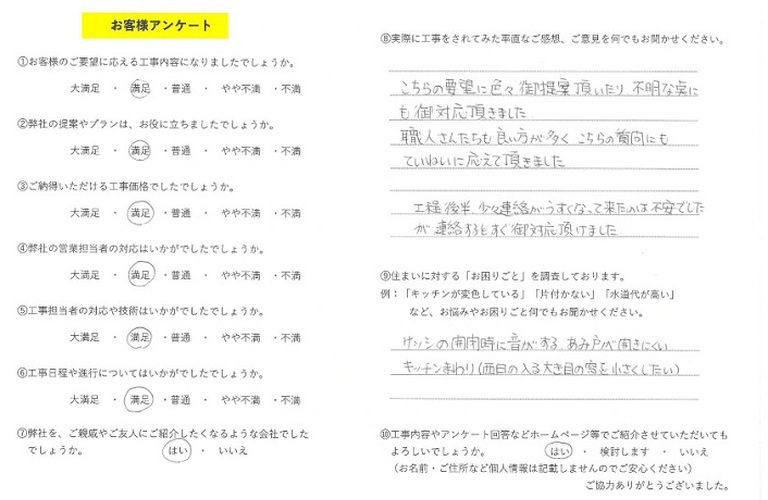 お客様アンケート
①お客様のご要望に応える工事内容になりましたでしょうか。
大満足 ・ 満足 ・普通 ・ やや不満 ・不満
②弊社の提案やプランは、お役に立ちましたでしょうか。
大満足 ・ 満足 ・普通 ・ やや不満 ・不満
③ご納得いただける工事価格でしたでしょうか。
大満足 ・ 満足 ・普通 ・ やや不満 ・不満
④弊社の営業担当者の対応はいかがでしたでしょうか。
大満足 ・ 満足 ・普通 ・ やや不満 ・不満
⑤工事担当者の対応や技術はいかがでしたでしょうか。
大満足 ・ 満足 ・普通 ・ やや不満 ・不満
⑥工事日程や進行についてはいかがでしたでしょうか。
大満足 ・ 満足 ・普通 ・ やや不満 ・不満
⑦弊社を、ご親戚やご友人にご紹介したくなるような会社でした
でしょうか。 はい ・ いいえ
⑧実際に工事をされてみた率直なご感想、ご意見を何でもお聞かせください。
こちらの要望に色々御提案頂いたり 不明な点に
も御対応頂きました
職人さんたちも良い方が多く こちらの質問にも
ていねいに応えて頂きました
工程後半、少々連絡がうすくなって来たのは不安でした
が 連絡するとすぐ御対応頂けました
⑨住まいに対する「お困りごと」を調査しております。
例：「キッチンが変色している」「片付かない」「水道代が高い」
など、お悩みやお困りごと何でもお聞かせください。
サッシの開閉時に音がする、あみ戸が開きにくい
キッチンまわり(西日の入る大き目の窓を小さくしたい)
⑩工事内容やアンケート回答などホームページ等でご紹介させていただいても
よろしいでしょうか。 はい ・ 検討します ・ いいえ
（お名前・ご住所など個人情報は記載しませんのでご安心ください）
ご協力ありがとうございました。